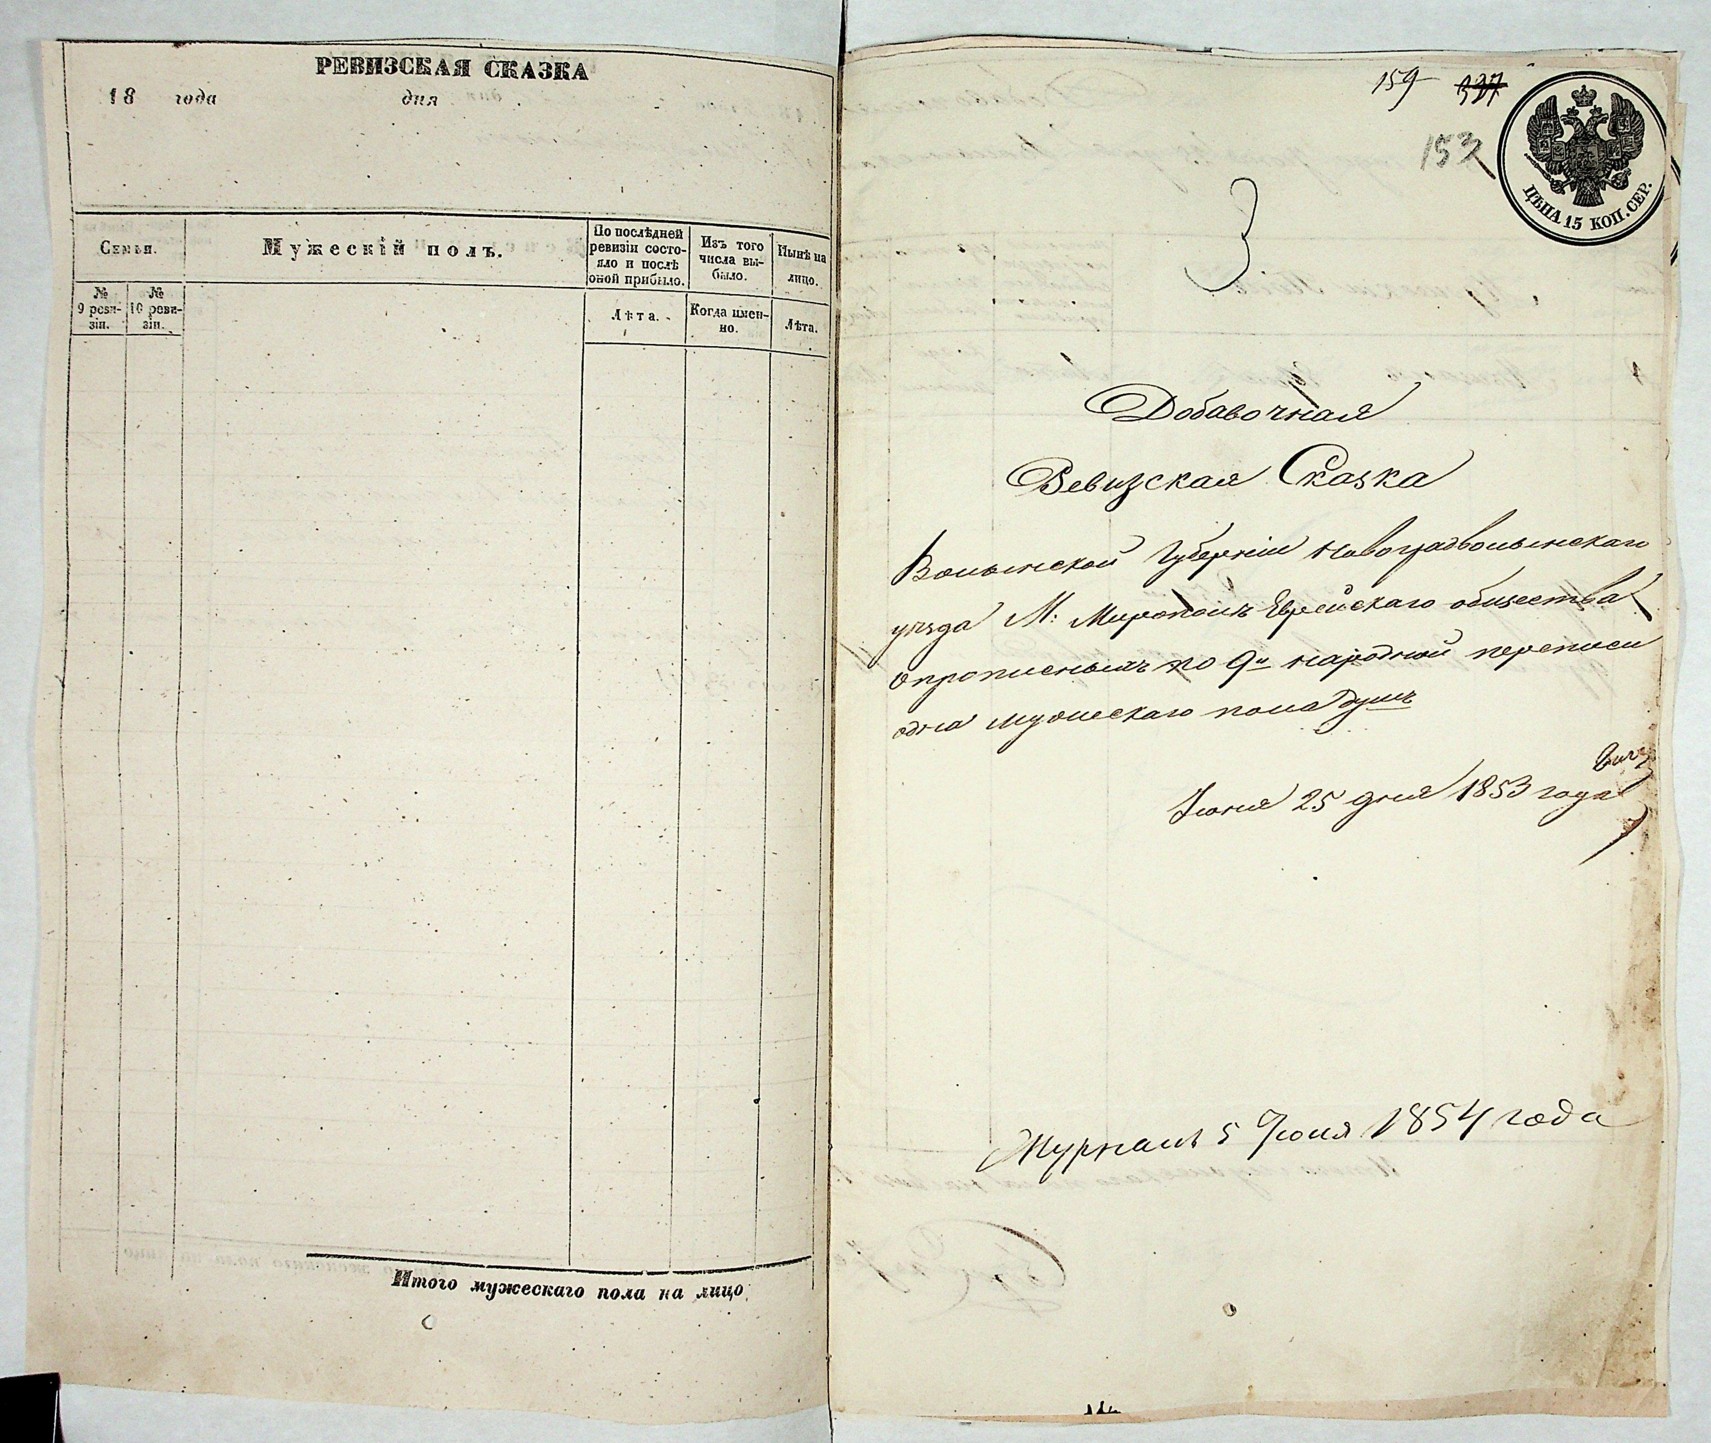 РЕВИЗСКАЯ СКАЗКА
18 года дня
Семьи.
Мужескій полъ.
По послѣдней ревизіи состояло и послѣ оной прибыло.
Изъ того числа выбыло.
Нынѣ на лицо.
№ 9 ревизіи.
№ 10 ревизіи.
Лѣта.
Когда именно.
Лѣта.
Итого мужескаго пола на лицо
159 337
153
ЦѢНА 15 КОП. СЕР.
3
Добавочная
Ревизская Сказка
Волынской Губерніи Новоградволынскаго
уѣзда М: Мирополь Еврейскаго общества
о прописныхъ по 9й народной переписи
одна мужескаго пола душъ
Іюня 25 дня 1853 года
Журналъ 5 Іюля 1854 года